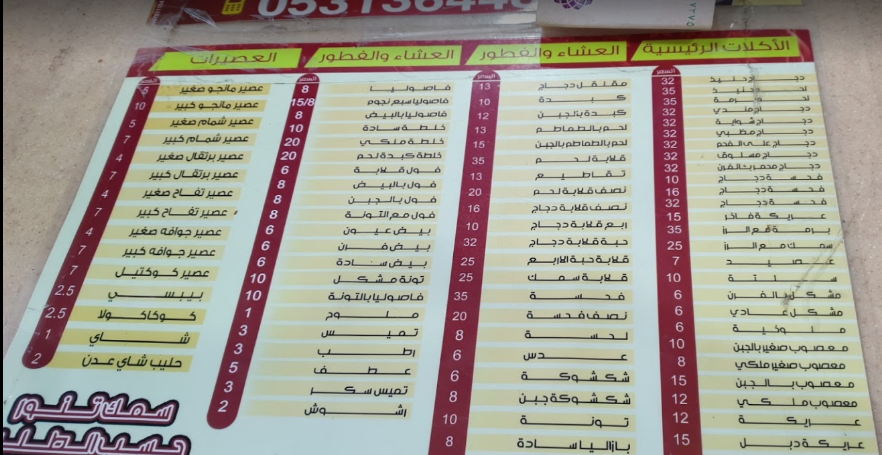 053136440
الأكلات الرئيسية
السعر
دجاج حنيذ 32
لحم حنيذ 35
لحم برمة 35
دجاج مندي 32
دجاج شواية 32
دجاج مظبي 32
دجاج على الفحم 32
دجاج مسلوق 32
دجاج محمر بالفرن 32
فحسة دجاج 10
فحسة دجاج 16
فحسة دجاج 32
عريكة فاخر 15
برمة مع الرز 35
سمك مع الرز 25
عصيد 7
سلتة 10
مشكل بالفرن 6
مشكل عادي 6
ملوخية 6
معصوب صغير بالجبن 10
معصوب صغير ملكي 8
معصوب بالجبن 15
معصوب ملكي 12
عريكة 12
عريكة دبل 15
العشاء والفطور
السعر
مقلقل دجاج 13
كبدة 10
كبدة بتجبن 12
لحم بالطماطم 13
لحم بالطماطم بالجبن 15
قلابة لحم 35
تقاطيع 13
نصف قلابة لحم 20
نصف قلابة دجاج 16
ربع قلابة دجاج 10
حبة قلابة دجاج 32
قلابة حبة الاربع 25
قلابة سمك 25
فحسة 35
نصف فحسة 20
لحسة 8
عدس 6
شكشوكة 6
شكشوكة جبن 8
تونة 10
بازاليا سادة 8
العشاء والفطور
السعر
فاصوليا 8
فاصوليا سبع نجوم 15/8
فاصوليا بالبيض 8
خلطة سادة 10
خلطة ملكي 20
خلطة كبدة لحم 20
فول قلابة 6
فول بالبيض 8
فول بالجبن 8
فول مع التونة 8
بيض عيون 6
بيض فرن 6
بيض سادة 6
تونة مشكل 10
فاصوليا بالتونة 10
ملوح 1
تميس 3
رطب 3
عطف 5
تميس سكر 3
راشوش 2
العصيرات
السعر
عصير مانجو صغير 5
عصير مانجو كبير 10
عصير شمام صغير 5
عصير شمام كبير 7
عصير برتقال صغير 4
عصير برتقال كبير 7
عصير تفاح صغير 4
عصير تفاح كبير 7
عصير جوافه صغير 4
عصير جوافه كبير 7
عصير كوكتيل 7
بيبسي 2.5
كوكاكولا 2.5
شاي 1
حليب شاي عدن 2
سمك تنور
حسب الطلب